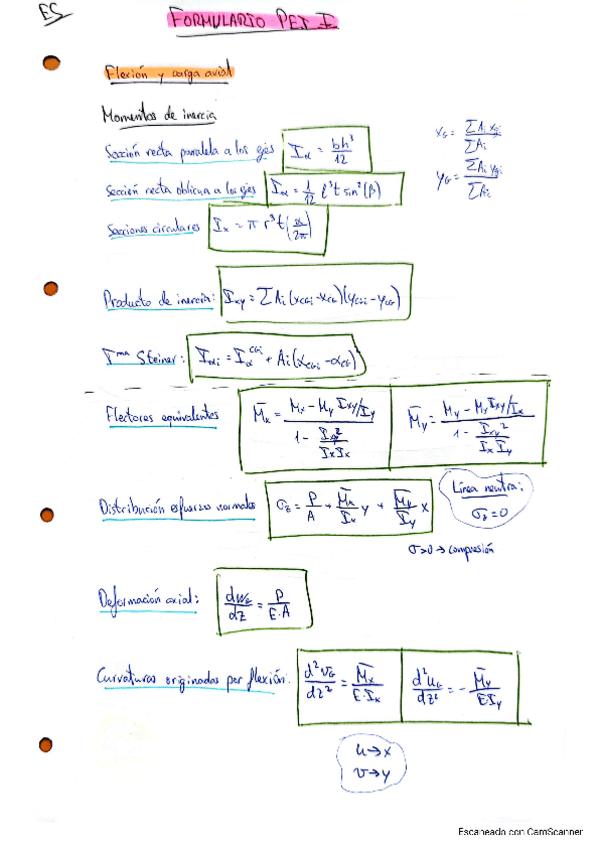 ES
FORMULARIO PEI I
Flexión y carga axial
Momentos de inercia
Sección recta paralela a los ejes Iα = bh³/12
x_G = ΣAi x_Gi / ΣAi
y_G = ΣAi y_Gi / ΣAi
Sección recta oblicua a los ejes Iα = 1/12 l³t sin²(β)
Secciones circulares Ix = π r³t (α/2π)
Producto de inercia: Ixy = ΣAi (x_CGi - x_CG)(y_CGi - y_CG)
Tma Steiner: Iαi = Iα^CGi + Ai(α_CGi - α_CG)
Flectores equivalentes M̄x = (Mx - My Ixy/Iy) / (1 - Ixy²/IxIx) M̄y = (My - Mx Ixy/Ix) / (1 - Ixy²/IxIy)
Distribución esfuerzo normales σz = P/A + M̄x/Ix y + M̄y/Iy x
Línea neutra:
σz = 0
σ>0 → compresión
Deformación axial: dw_G/dz = P/E·A
Curvaturas originadas por flexión: d²v_G/dz² = M̄x/E·Ix d²u_G/dz² = - M̄y/E·Iy
u → x
v → y
Escaneado con CamScanner